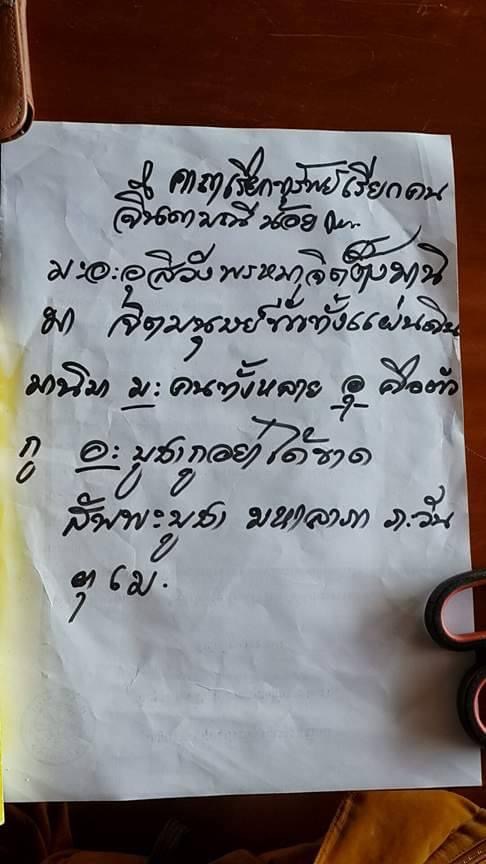 คาถาเรียกทรัพย์เรียกคน
จินดามณีน้อย
มะอะอุสิวังพรหมาจิตตังมานิ
มา จิตมนุษย์ทั่วทั้งแผ่นดิน
มานิมา มะ คนทั้งหลาย อุ คือตัว
กู อะ บูชากูอย่าได้ขาด
สัพพะบูชา มหาลาภา ภะวัน
ตุ เม.